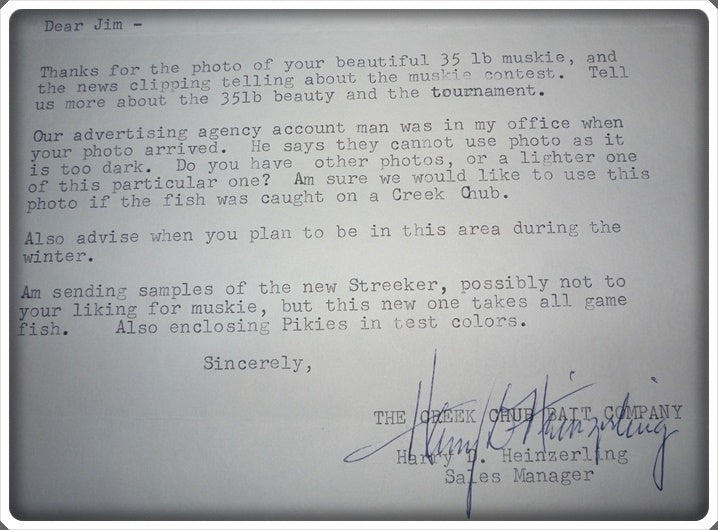 Dear Jim -
Thanks for the photo of your beautiful 35 lb muskie, and
the news clipping telling about the muskie contest. Tell
us more about the 35lb beauty and the tournament.
Our advertising agency account man was in my office when
your photo arrived. He says they cannot use photo as it
is too dark. Do you have other photos, or a lighter one
of this particular one? Am sure we would like to use this
photo if the fish was caught on a Creek Chub.
Also advise when you plan to be in this area during the
winter.
Am sending samples of the new Streeker, possibly not to
your liking for muskie, but this new one takes all game
fish. Also enclosing Pikies in test colors.
Sincerely,
THE CREEK CHUB BAIT COMPANY
Harry D. Heinzerling
Harry D. Heinzerling
Sales Manager